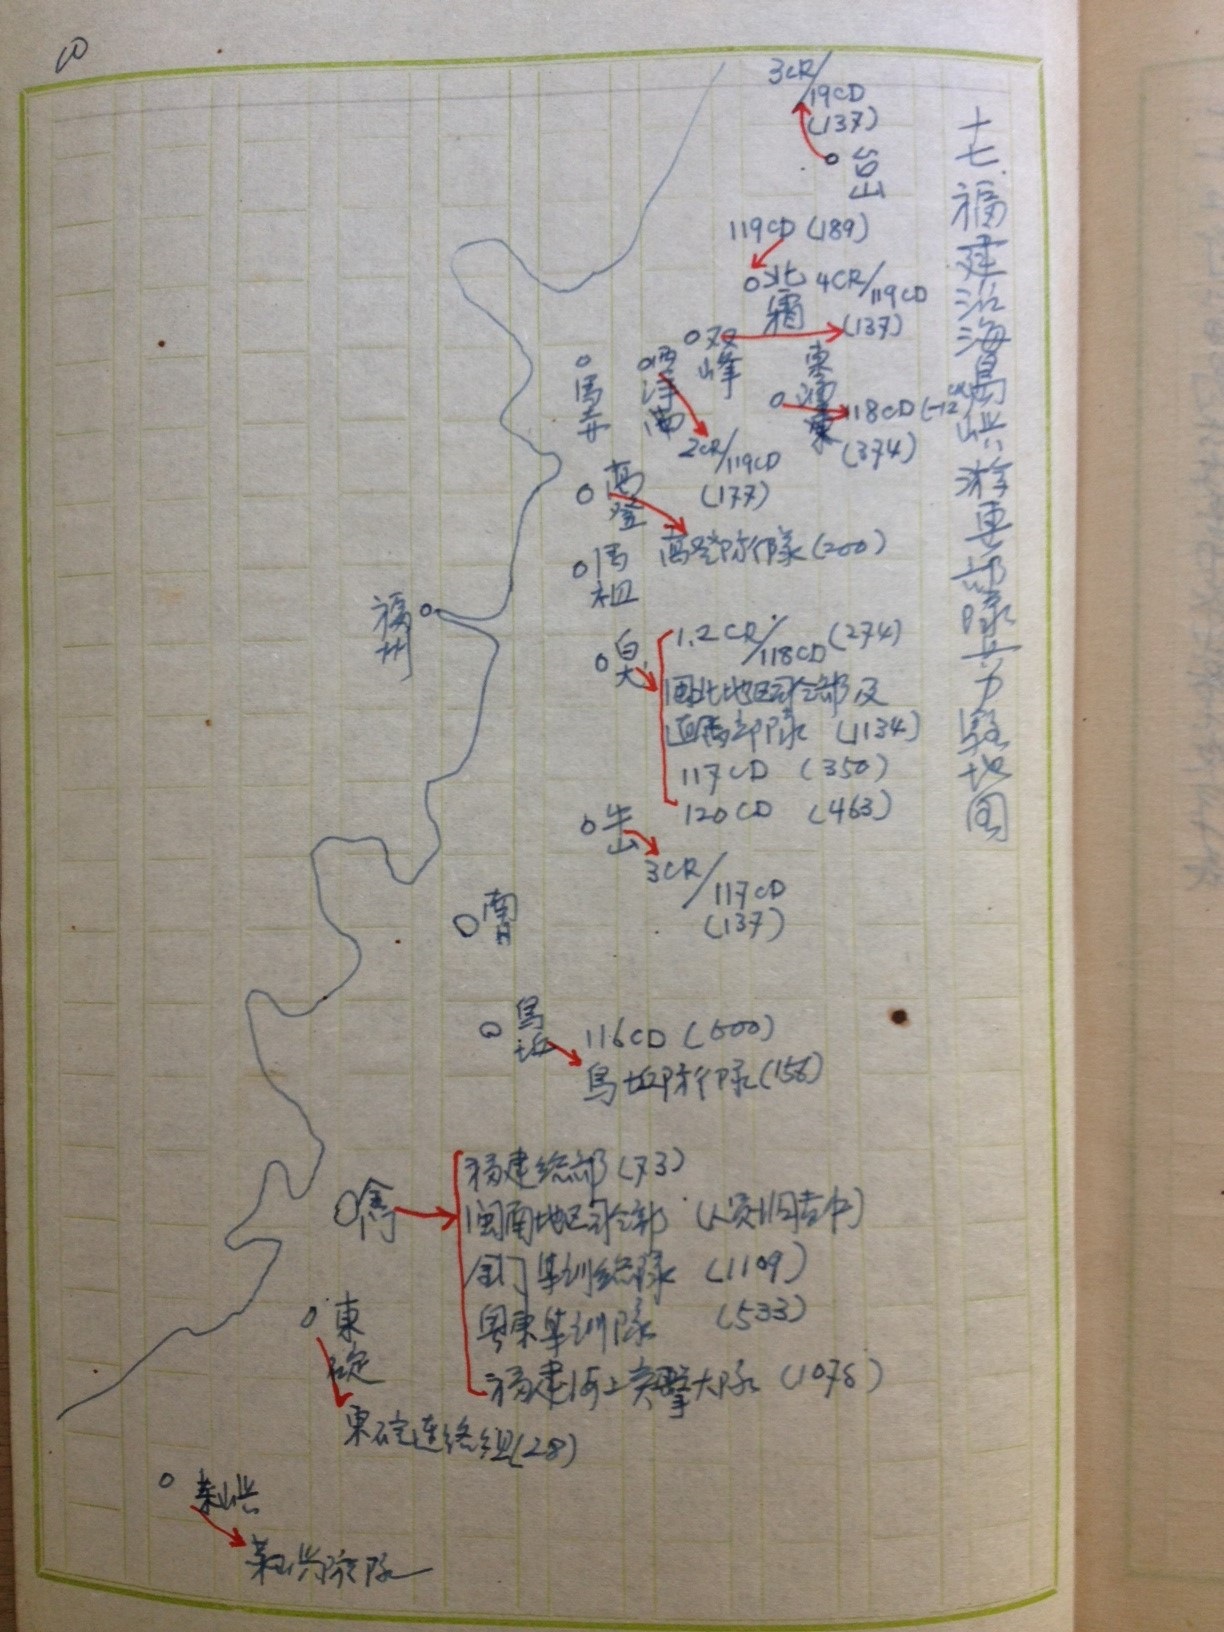 十七、福建沿海島嶼游東部隊兵力駐地图
3CR/19CD
(137)
台山
119CD (189)
北霜
4CR/119CD
(137)
双峰
東湧
118CD
(374)
浮
馬
2CR/119CD
(177)
高登
高登防衛隊 (200)
馬祖
福州
白犬
1.2 CR/118CD (274)
闽北地区司令部及
直属部隊 (1134)
117CD (350)
120CD (463)
牛山
3CR/117CD
(137)
南日
烏坵
116CD (500)
烏坵防衛隊 (156)
金門
福建総部 (73)
闽南地区司令部
金门集训総隊 (1109)
粤東集训隊 (533)
福建海上突擊大隊 (1078)
東碇
東碇連络组 (28)